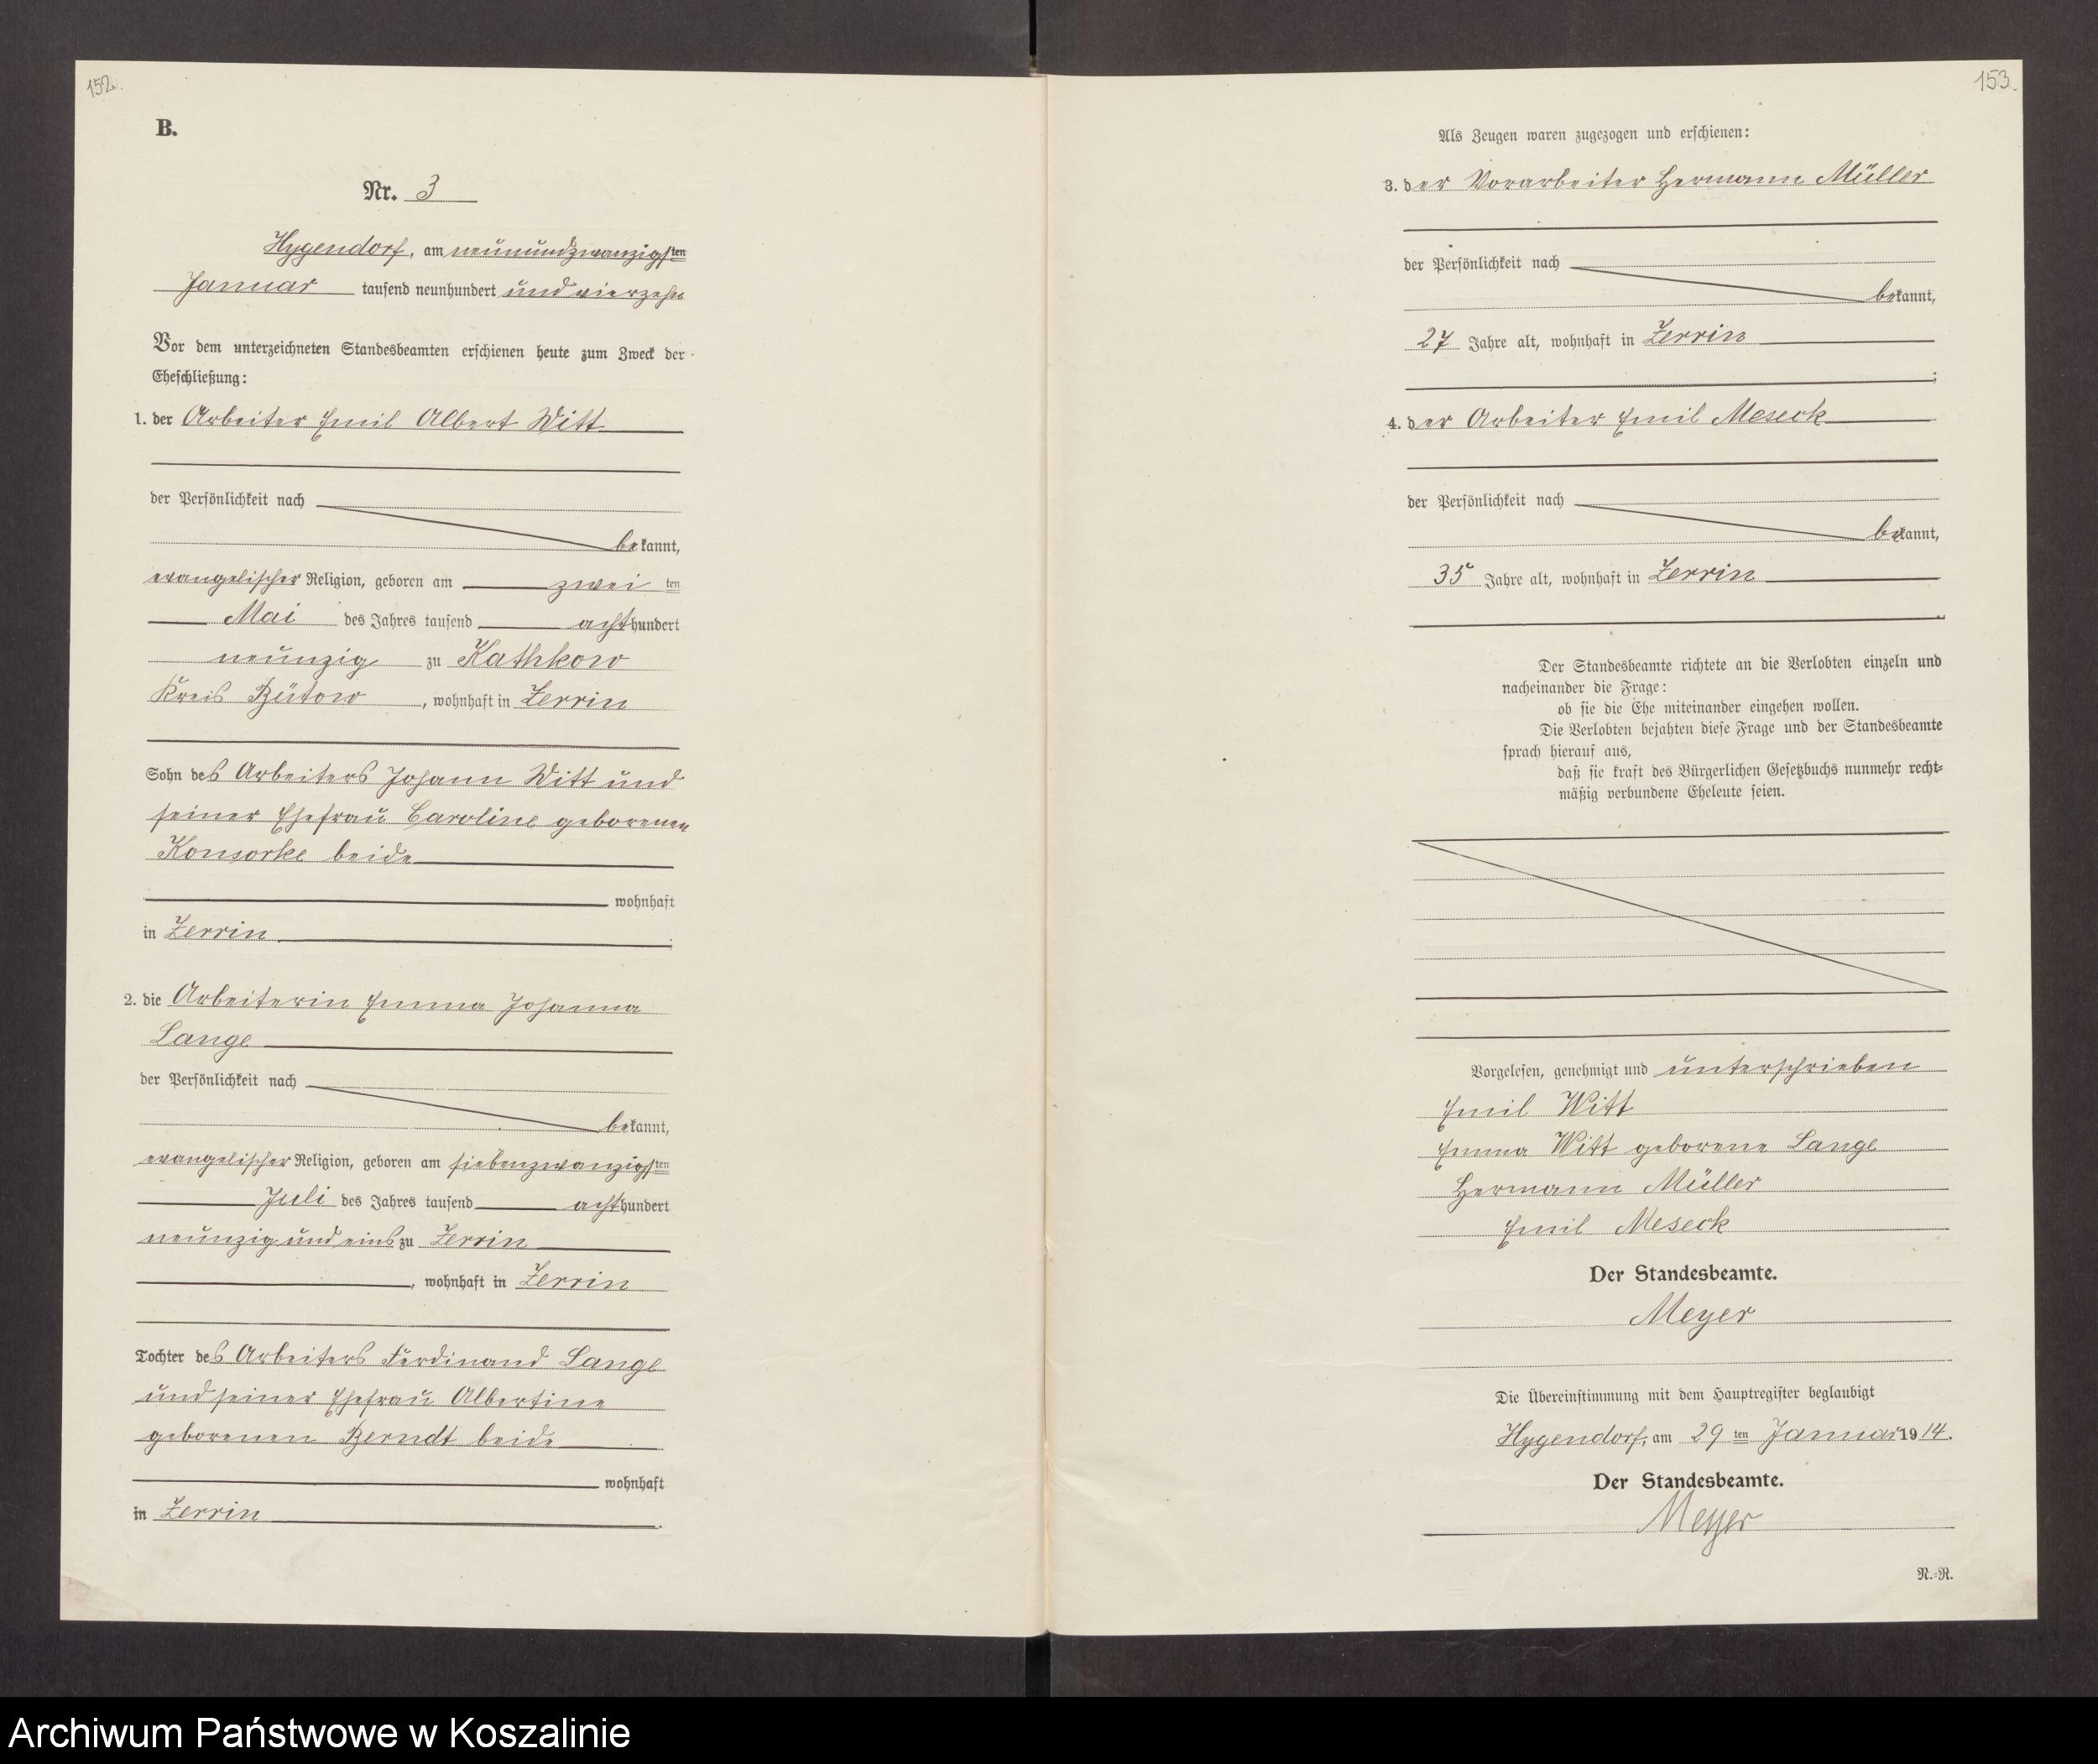 152.
B.
Nr. 3
Hygendorf, am neunundzwanzigsten
Januar tausend neunhundert und vierzehn
Vor dem unterzeichneten Standesbeamten erschienen heute zum Zweck der
Eheschließung:
1. der Arbeiter Emil Albert Witt
der Persönlichkeit nach
bekannt,
evangelischer Religion, geboren am zweiten
Mai des Jahres tausend achthundert
neunzig zu Kathkow
Kreis Bütow, wohnhaft in Zerrin
Sohn des Arbeiters Johann Witt und
seiner Ehefrau Caroline geborenen
Konsorke beide
wohnhaft
in Zerrin;
2. die Arbeiterin Emma Johanna
Lange
der Persönlichkeit nach
bekannt,
evangelischer Religion, geboren am siebenzwanzigsten
Juli des Jahres tausend achthundert
neunzig und eins zu Zerrin
, wohnhaft in Zerrin
Tochter des Arbeiters Ferdinand Lange
und seiner Ehefrau Albertine
geborenen Berndt beide
wohnhaft
in Zerrin.
153.
Als Zeugen waren zugezogen und erschienen:
3. der Vorarbeiter Hermann Müller
der Persönlichkeit nach
bekannt,
27 Jahre alt, wohnhaft in Zerrin
;
4. der Arbeiter Emil Meseck
der Persönlichkeit nach
bekannt,
35 Jahre alt, wohnhaft in Zerrin
.
Der Standesbeamte richtete an die Verlobten einzeln und
nacheinander die Frage:
ob sie die Ehe miteinander eingehen wollen.
Die Verlobten bejahten diese Frage und der Standesbeamte
sprach hierauf aus,
daß sie kraft des Bürgerlichen Gesetzbuchs nunmehr recht-
mäßig verbundene Eheleute seien.
Vorgelesen, genehmigt und unterschrieben
Emil Witt
Emma Witt geborene Lange
Hermann Müller
Emil Meseck
Der Standesbeamte.
Meyer
Die Übereinstimmung mit dem Hauptregister beglaubigt
Hygendorf, am 29 ten Januar 1914.
Der Standesbeamte.
Meyer
N.-R.
Archiwum Państwowe w Koszalinie